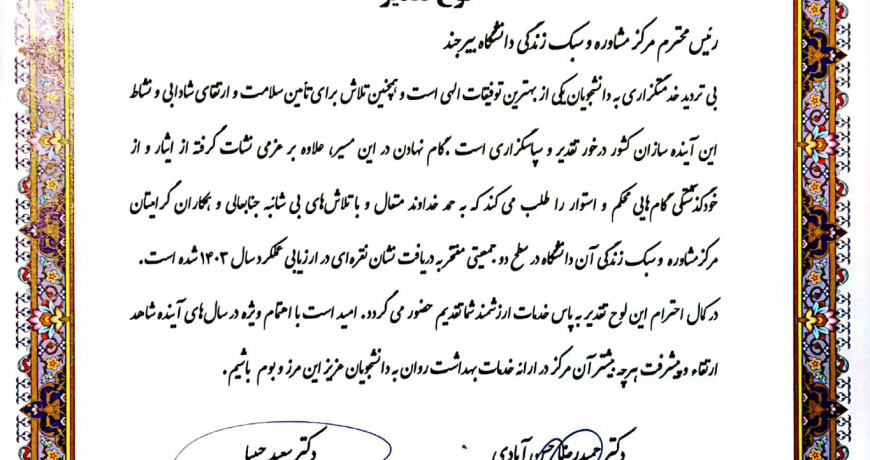 لوح تقدیر
رئیس محترم مرکز مشاوره و سبک زندگی دانشگاه بیرجند
بی تردید خدمتگزاری به دانشجویان یکی از بهترین توفیقات الهی است و همچنین تلاش برای تأمین سلامت و ارتقای شادابی و نشاط
این آینده سازان کشور درخور تقدیر و سپاسگزاری است. گام نهادن در این مسیر، علاوه بر عزمی نشات گرفته از ایثار و از
خودگذشتگی گام‌هایی محکم و استوار را طلب می کند که به حمد خداوند متعال و با تلاش‌های بی شائبه جنابعالی و همکاران گرامیتان
مرکز مشاوره و سبک زندگی آن دانشگاه در سطح دو جمعیتی مفتخر به دریافت نشان نقره ای در ارزیابی عملکرد سال ۱۴۰۳ شده است.
در کمال احترام این لوح تقدیر به پاس خدمات ارزشمند شما تقدیم حضور می گردد. امید است با اهتمام ویژه در سال‌های آینده شاهد
ارتقاء و پیشرفت هرچه بیشتر آن مرکز در ارائه خدمات بهداشت روان به دانشجویان عزیز این مرز و بوم باشیم.
دکتر حمیدرضا حسن آبادی
دکتر سعید حبیبا